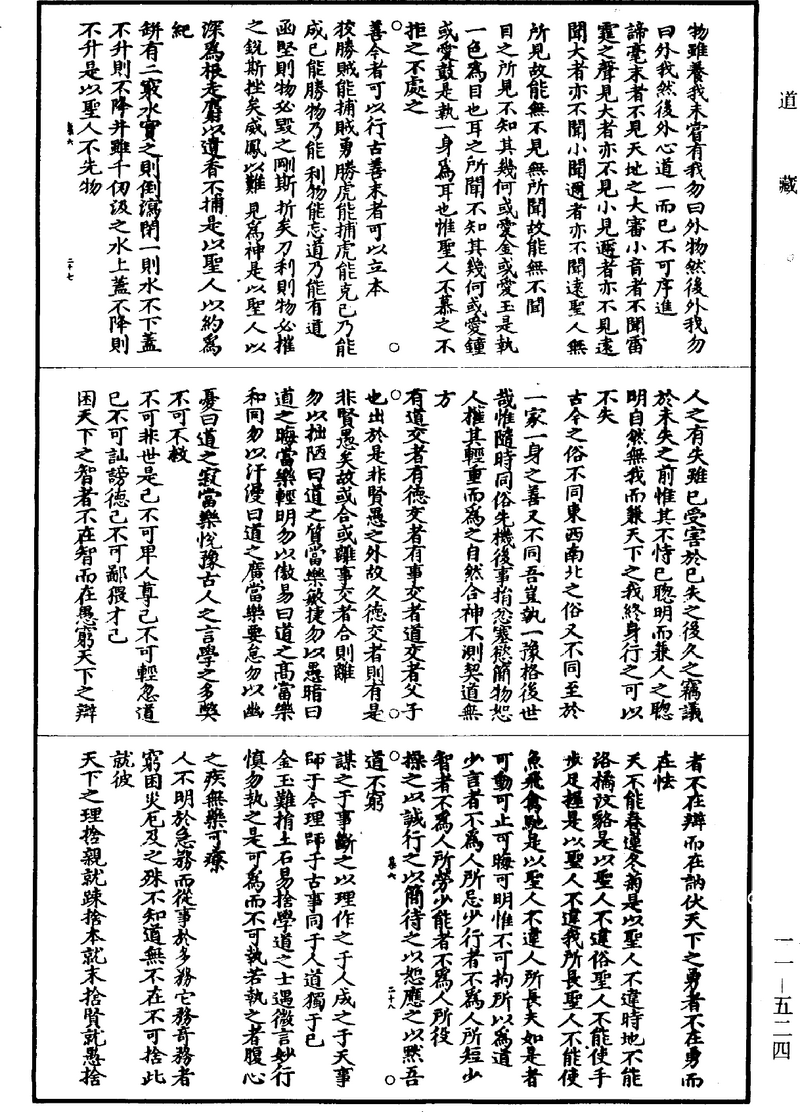 道藏
一一—五二四
物雖養我未嘗有我勿曰外物然後外我勿
曰外我然後外心道一而已不可序進
諦毫末者不見天地之大審小音者不聞雷
霆之聲見大者亦不見小見邇者亦不見遠
聞大者亦不聞小聞邇者亦不聞遠聖人無
所見故能無不見無所聞故能無不聞
目之所見不知其幾何或愛金或愛玉是執
一色為目也耳之所聞不知其幾何或愛鐘
或愛鼓是執一身為耳也惟聖人不慕之不
拒之不處之
善今者可以行古善末者可以立本
狡勝賊能捕賊勇勝虎能捕虎能克己乃能
成己能勝物乃能利物能忘道乃能有道
函堅則物必毀之剛斯折矣刀利則物必摧
之銳斯挫矣威鳳以難見為神是以聖人以
深為根走麝以遺香不捕是以聖人以約為
紀
缾有二竅水實之則倒瀉閉一則水不下蓋
不升則不降井雖千仞汲之水上蓋不降則
不升是以聖人不先物
二十七
人之有失雖已受害於已失之後久之竊議
於未失之前惟其不恃己聰明而兼人之聰
明自然無我而兼天下之我終身行之可以
不失
古今之俗不同東西南北之俗又不同至於
一家一身之善又不同吾豈執一豫格後世
哉惟隨時同俗先機後事捐忿塞慾簡物恕
人權其輕重而為之自然合神不測契道無
方
有道交者有德交者有事交者道交者父子
也出於是非賢愚之外故久德交者則有是
非賢愚矣故或合或離事交者合則離
勿以拙陋曰道之質當樂敏捷勿以愚暗曰
道之晦當樂輕明勿以傲易曰道之高當樂
和同勿以汗漫曰道之廣當樂要急勿以幽
憂曰道之寂當樂悅豫古人之言學之多獘
不可不救
不可非世是己不可卑人尊己不可輕忽道
己不可訕謗德己不可鄙猥才己
困天下之智者不在智而在愚窮天下之辯
者不在辯而在訥伏天下之勇者不在勇而
在怯
天不能春蓮冬菊是以聖人不違時地不能
洛橘汶貉是以聖人不違俗聖人不能使手
步足握是以聖人不違我所長聖人不能使
魚飛禽馳是以聖人不違人所長夫如是者
可動可止可晦可明惟不可拘所以為道
少言者不為人所忌少行者不為人所短少
智者不為人所勞少能者不為人所役
操之以誠行之以簡待之以恕應之以默吾
道不窮
二十八
謀之于事斷之以理作之于人成之于天事
師于今理師于古事同于人道獨于己
金玉難捐土石易捨學道之士遇微言妙行
慎勿執之是可為而不可執若執之者腹心
之疾無藥可療
人不明於急務而從事於多務它務奇務者
窮困災厄及之殊不知道無不在不可捨此
就彼
天下之理捨親就踈捨本就末捨賢就愚捨